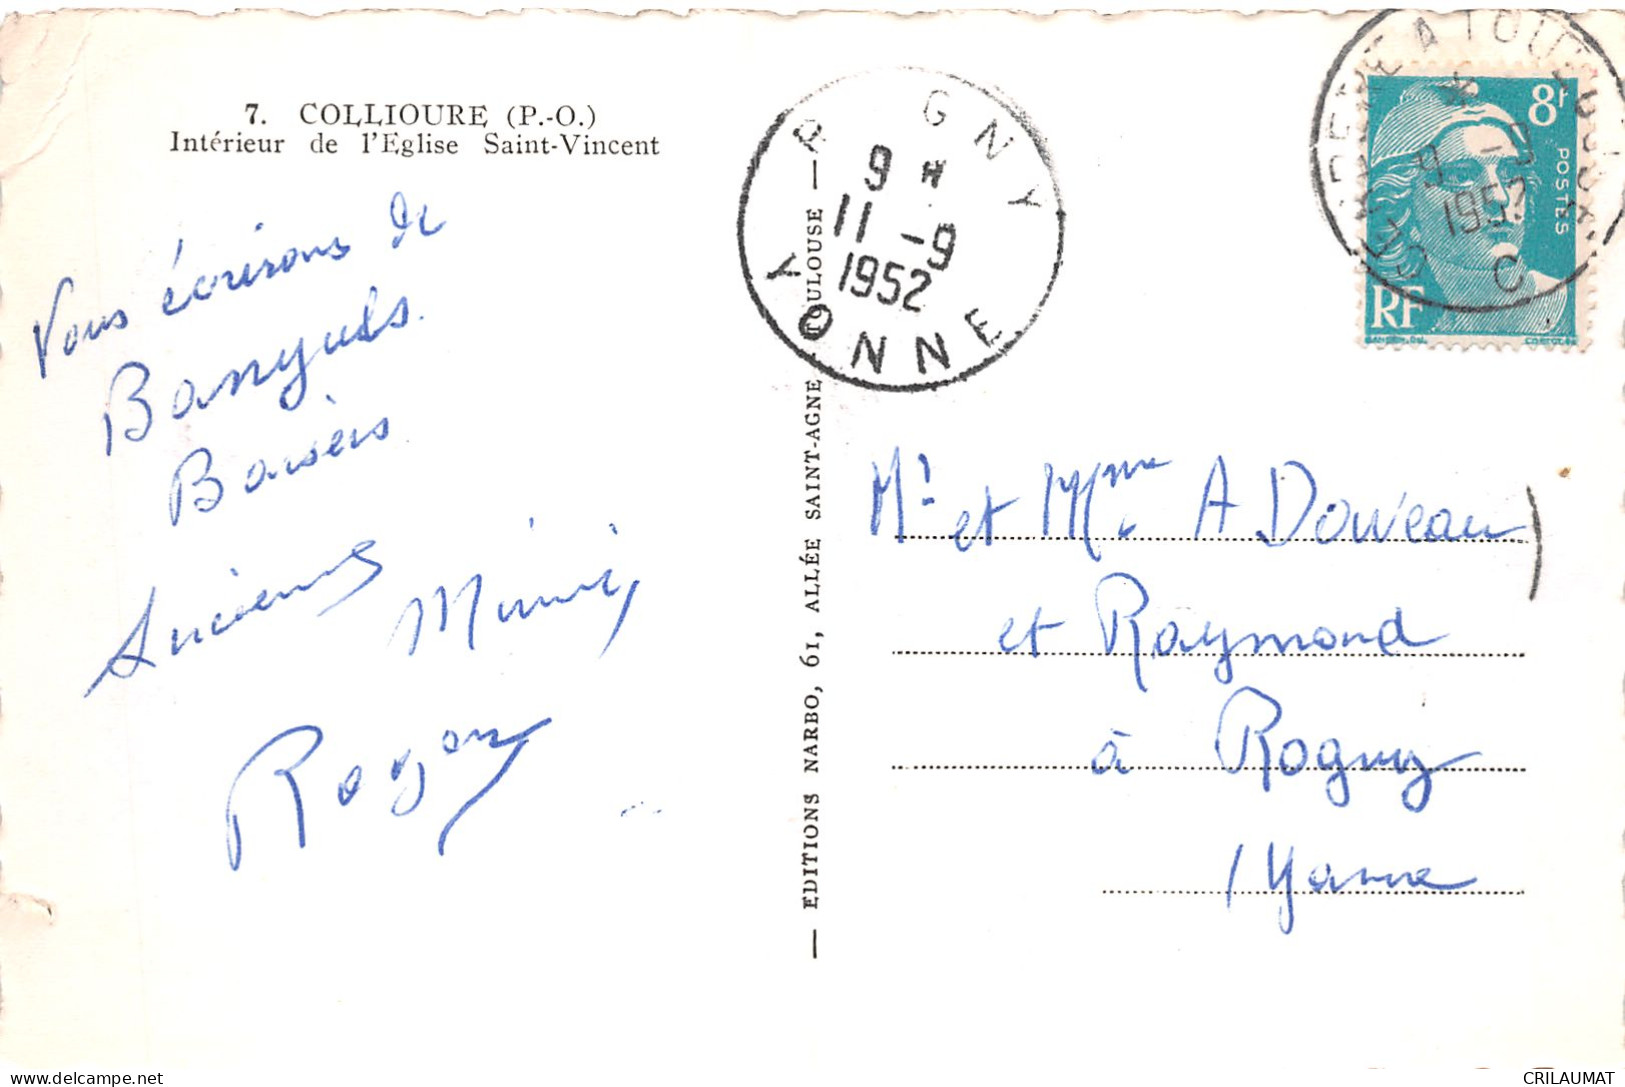 7. COLLIOURE (P.-O.)
Intérieur de l'Eglise Saint-Vincent
Vous écrirons de
Banyuls.
Baisers
Mimi
Roger
— EDITIONS NARBO, 61, ALLÉE SAINT-AGNE TOULOUSE —
R GNY
9 H
11 -9
1952
YONNE
A TOULOUSE
9 -9
1952
C
8f
POSTES
RF
GANDON. DEL.
Mr et Mme A Douveau
et Raymond
à Rogny
(Yonne
delcampe.net
CRILAUMAT